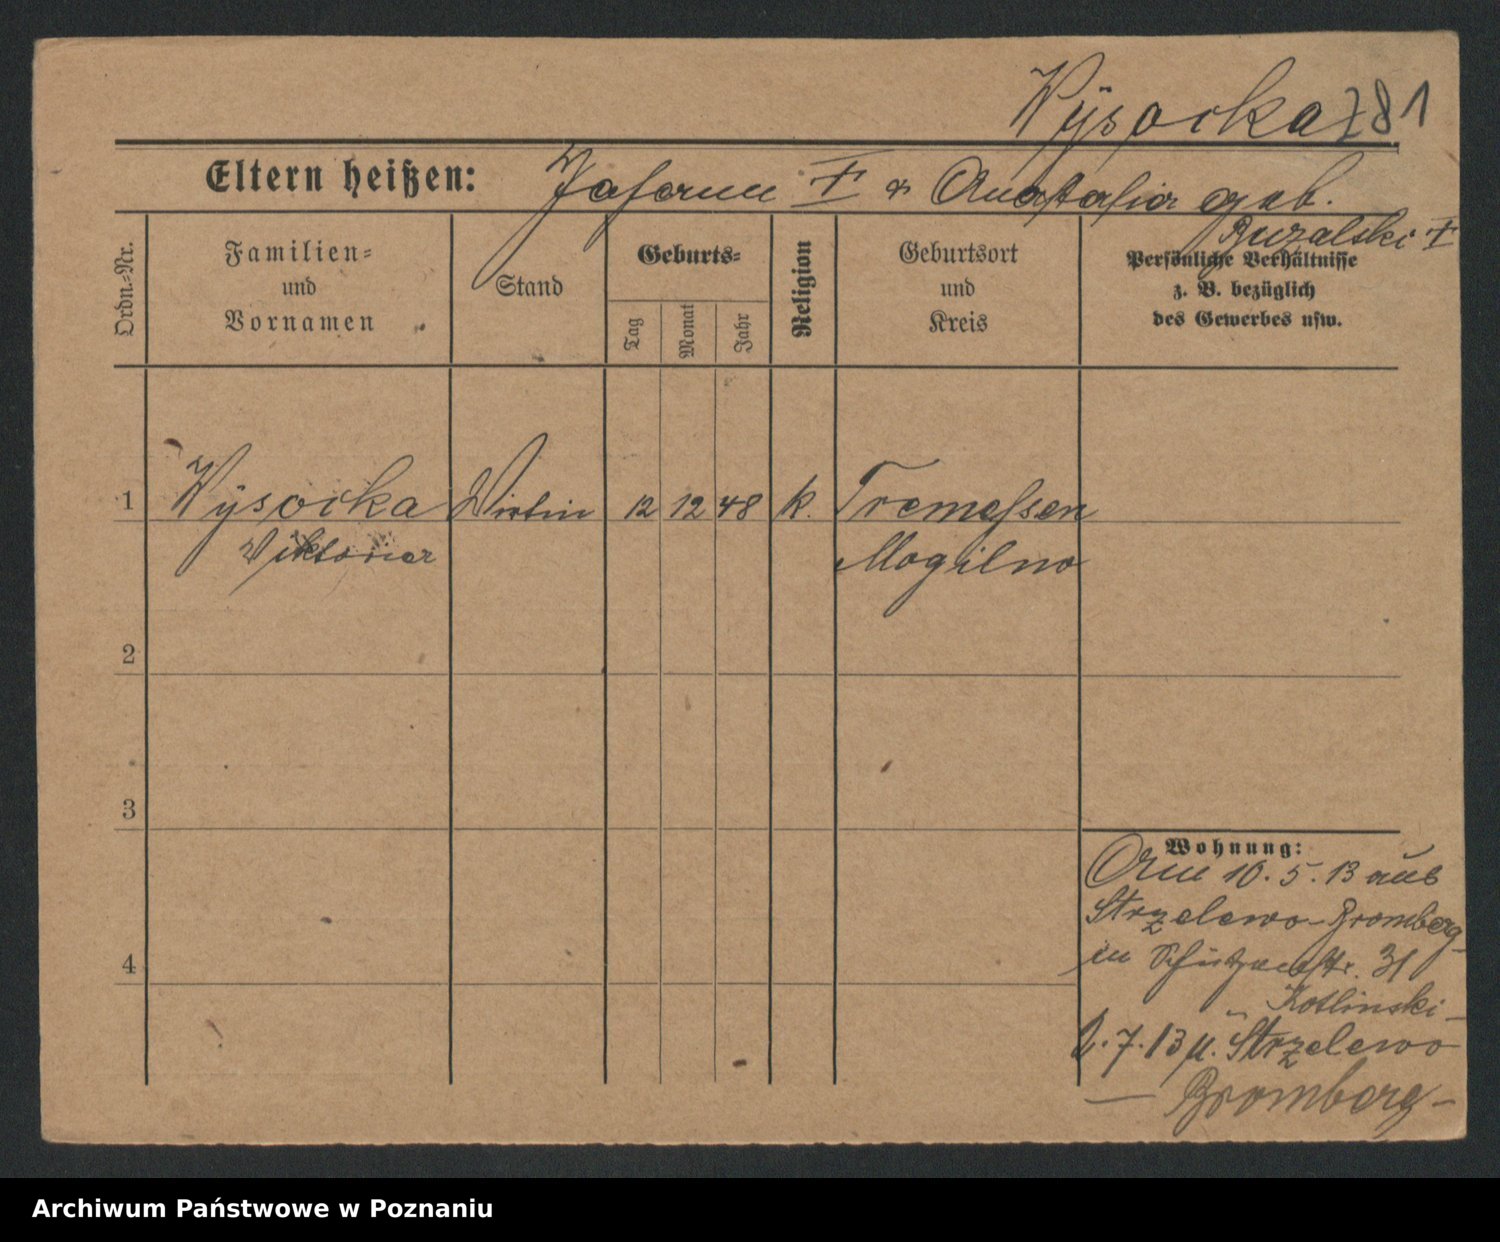 Wÿsocka 781
Eltern heißen: Johann † & Anastasia geb.
Ruzalski †
Ordn.-Nr.
Familien-
und
Vornamen
Stand
Geburts-
Tag
Monat
Jahr
Religion
Geburtsort
und
Kreis
Persönliche Verhältnisse
z. B. bezüglich
des Gewerbes usw.
1 Wÿsocka Wirtin 12 12 48 k. Tremessen
Viktoria Mogilno
2
3
4
Wohnung:
Am 10. 5. 13 aus
Strzelewo-Bromberg-
in Schützenstr. 31
Kotlinski-
2. 7. 13 n. Strzelewo
- Bromberg-
Archiwum Państwowe w Poznaniu